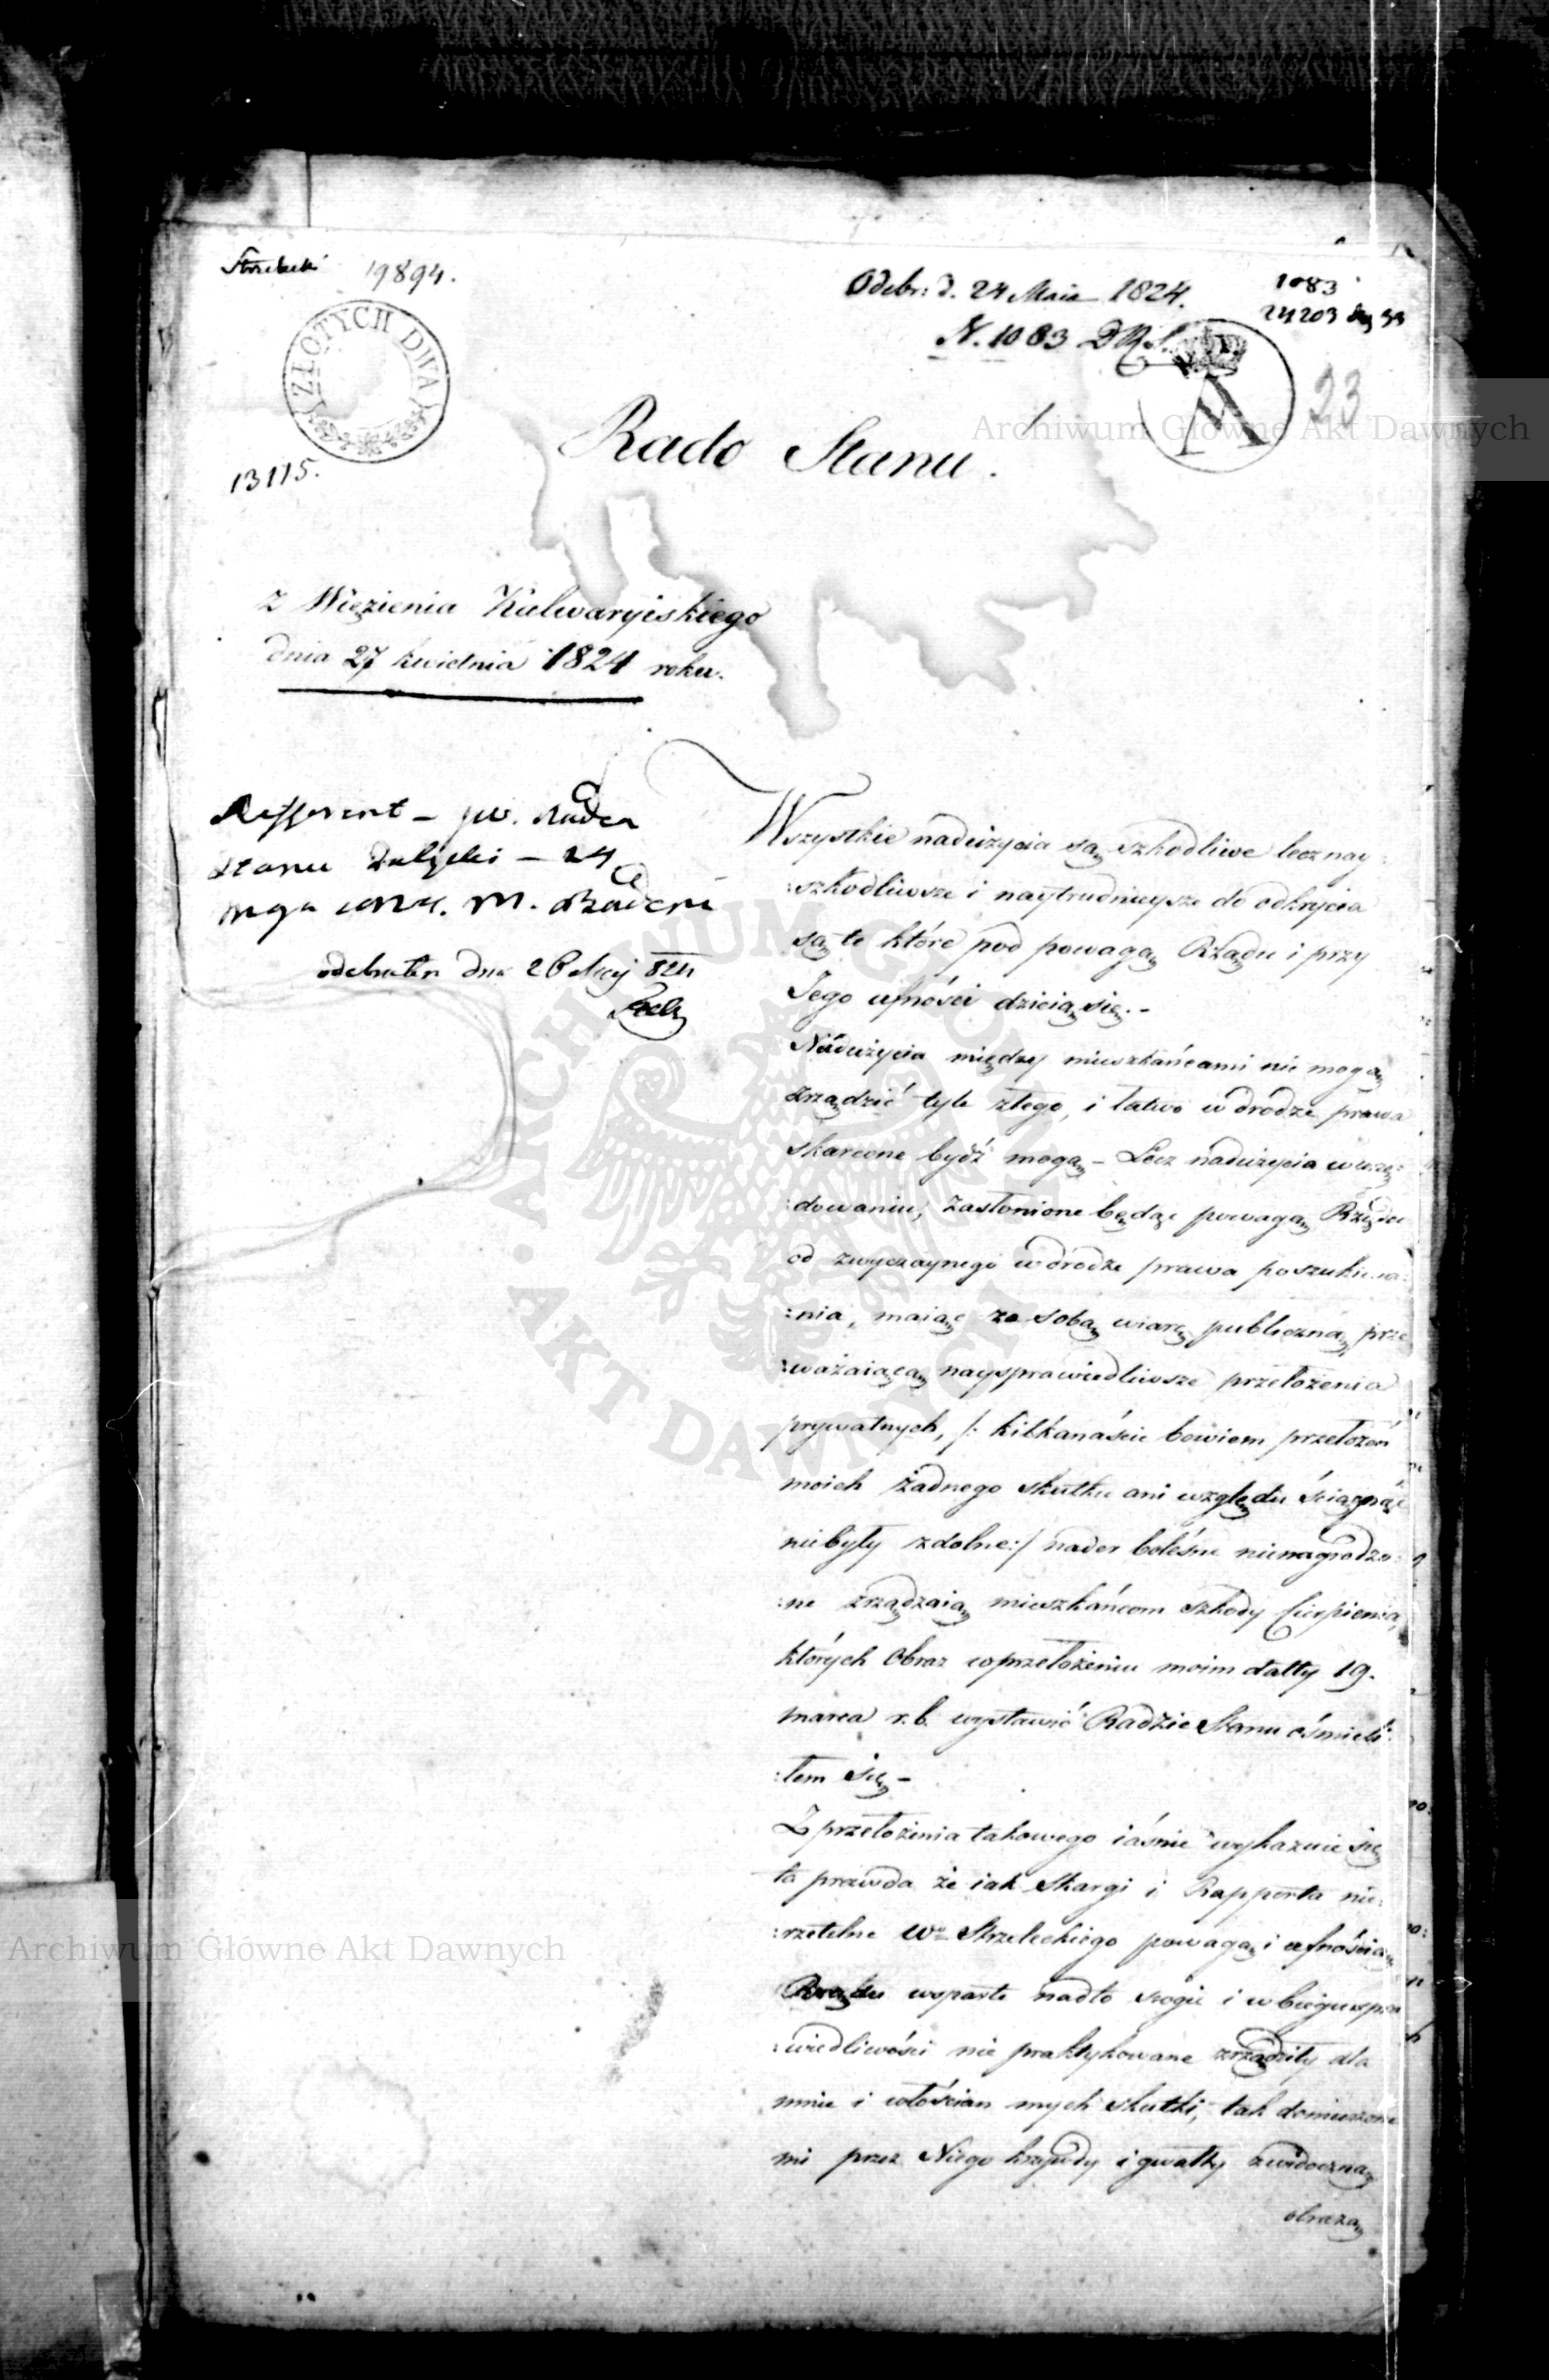 Strzelecki 19894.
Odebr: d. 24 Maia 1824.
N. 1083 D R S.
1083
24203
ZŁOTYCH DWA
23
13115.
Rado Stanu.
z Więzienia Kalwaryiskiego
dnia 27 kwietnia 1824 roku.
Refferent – jw. Radca
Stanu – 24
maja 1824. M. Badeni
odebrałem dnia 26 Maj 824
Wszystkie nadużycia są szkodliwe lecz nay:
:szkodliwsze i naytrudnieysze do odkrycia
są te które pod powagą Rządu i przy
Jego ufności dzieią się. –
Nadużycia między mieszkańcami nie mogą
zrządzić tyle złego, i łatwo w drodze prawa
skarcone bydź mogą – Lecz nadużycia w urzę:
:dowaniu, zasłonione będąc powagą Rządu
od zwyczaynego w drodze prawa poszukiwa:
:nia, maiąc za sobą wiarę publiczną, prze
:ważaiącą naysprawiedliwsze przełożenia
prywatnych, /: kilkanaście bowiem przełożeń
moich żadnego skutku ani względu ściągnąć
niebyły zdolne :/ nader boleśne nienagrodzo:
:ne zrządzaią mieszkańcom szkody Cierpienia,
których Obraz w przełożeniu moim datty 19.
marca r. b. wystawić Radzie Stanu ośmieli:
:łem się –
Z przełożenia takowego iaśnie wykazuie się
ta prawda że iak Skargi i Rapporta nie:
:rzetelne Wo Strzeleckiego powagą i ufnością
Rządu wsparte nadto srogie i w biegu spra
:wiedliwości nie praktykowane zrządziły dla
mnie i włościan mych skutki, tak domierzone
mi przez Niego krzywdy i gwałty zwidoczną
obrazą
Archiwum Główne Akt Dawnych
Archiwum Główne Akt Dawnych
ARCHIWUM GŁÓWNE
AKT DAWNYCH